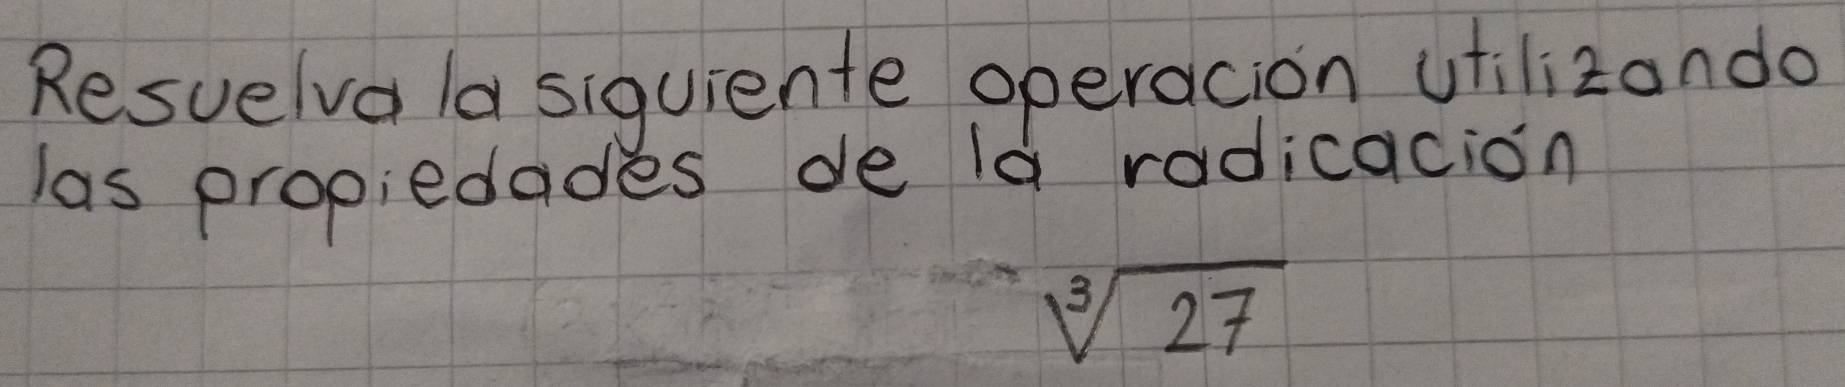 Resuelva la siguiente operación utilizando
las propiedades de la radicación
∛27